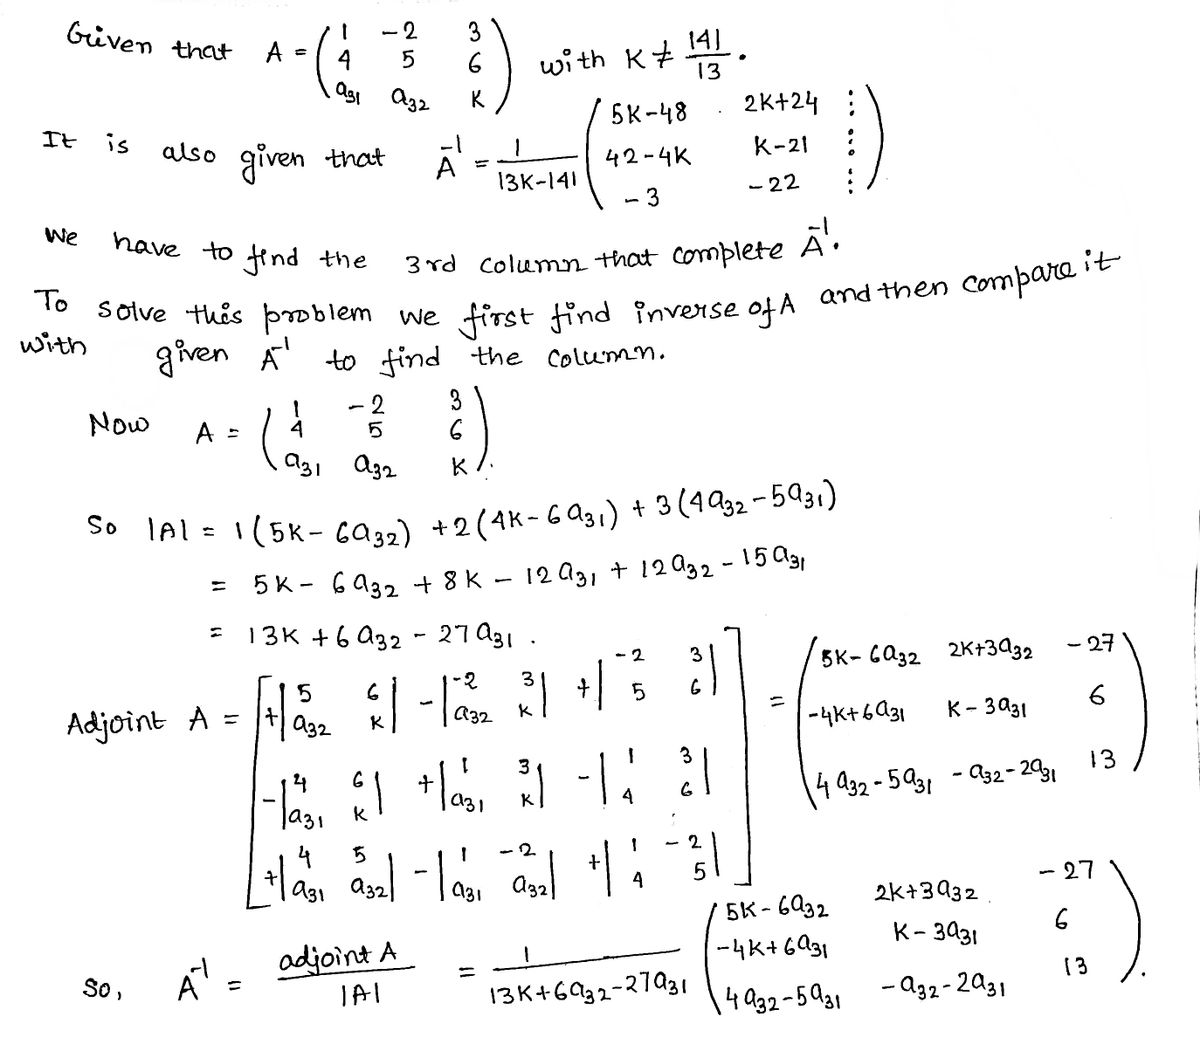 Given that A = ( 1 -2 3 ; 4 5 6 ; a31 a32 K ) with K ≠ 141/13 .
It is also given that A^-1 = 1/(13K-141) ( 5K-48 2K+24 ⋮ ; 42-4K K-21 ⋮ ; -3 -22 ⋮ )
We have to find the 3rd column that complete A^-1.
To solve this problem we first find inverse of A and then compare it
with given A^-1 to find the column.
Now A = ( 1 -2 3 ; 4 5 6 ; a31 a32 K ).
So |A| = 1(5K-6a32) +2(4K-6a31) + 3(4a32-5a31)
= 5K- 6a32 + 8K - 12a31 + 12a32 - 15a31
= 13K +6a32 - 27a31 .
Adjoint A = [ +|5 6 ; a32 K| -|-2 3 ; a32 K| +|-2 3 ; 5 6| ; -|4 6 ; a31 K| +|1 3 ; a31 K| -|1 3 ; 4 6| ; +|4 5 ; a31 a32| -|1 -2 ; a31 a32| +|1 -2 ; 4 5| ] = ( 5K-6a32 2K+3a32 -27 ; -4K+6a31 K-3a31 6 ; 4a32-5a31 -a32-2a31 13 )
So, A^-1 = adjoint A/|A| = 1/(13K+6a32-27a31) ( 5K-6a32 2K+3a32 -27 ; -4K+6a31 K-3a31 6 ; 4a32-5a31 -a32-2a31 13 ).